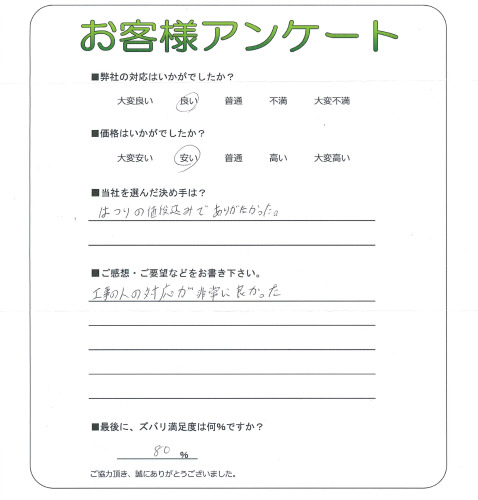 お客様アンケート
■弊社の対応はいかがでしたか？
大変良い 良い 普通 不満 大変不満
■価格はいかがでしたか？
大変安い 安い 普通 高い 大変高い
■当社を選んだ決め手は？
はつりの値段込みでありがたかった。
■ご感想・ご要望などをお書き下さい。
工事の人の対応が非常に良かった
■最後に、ズバリ満足度は何%ですか？
80 %
ご協力頂き、誠にありがとうございました。